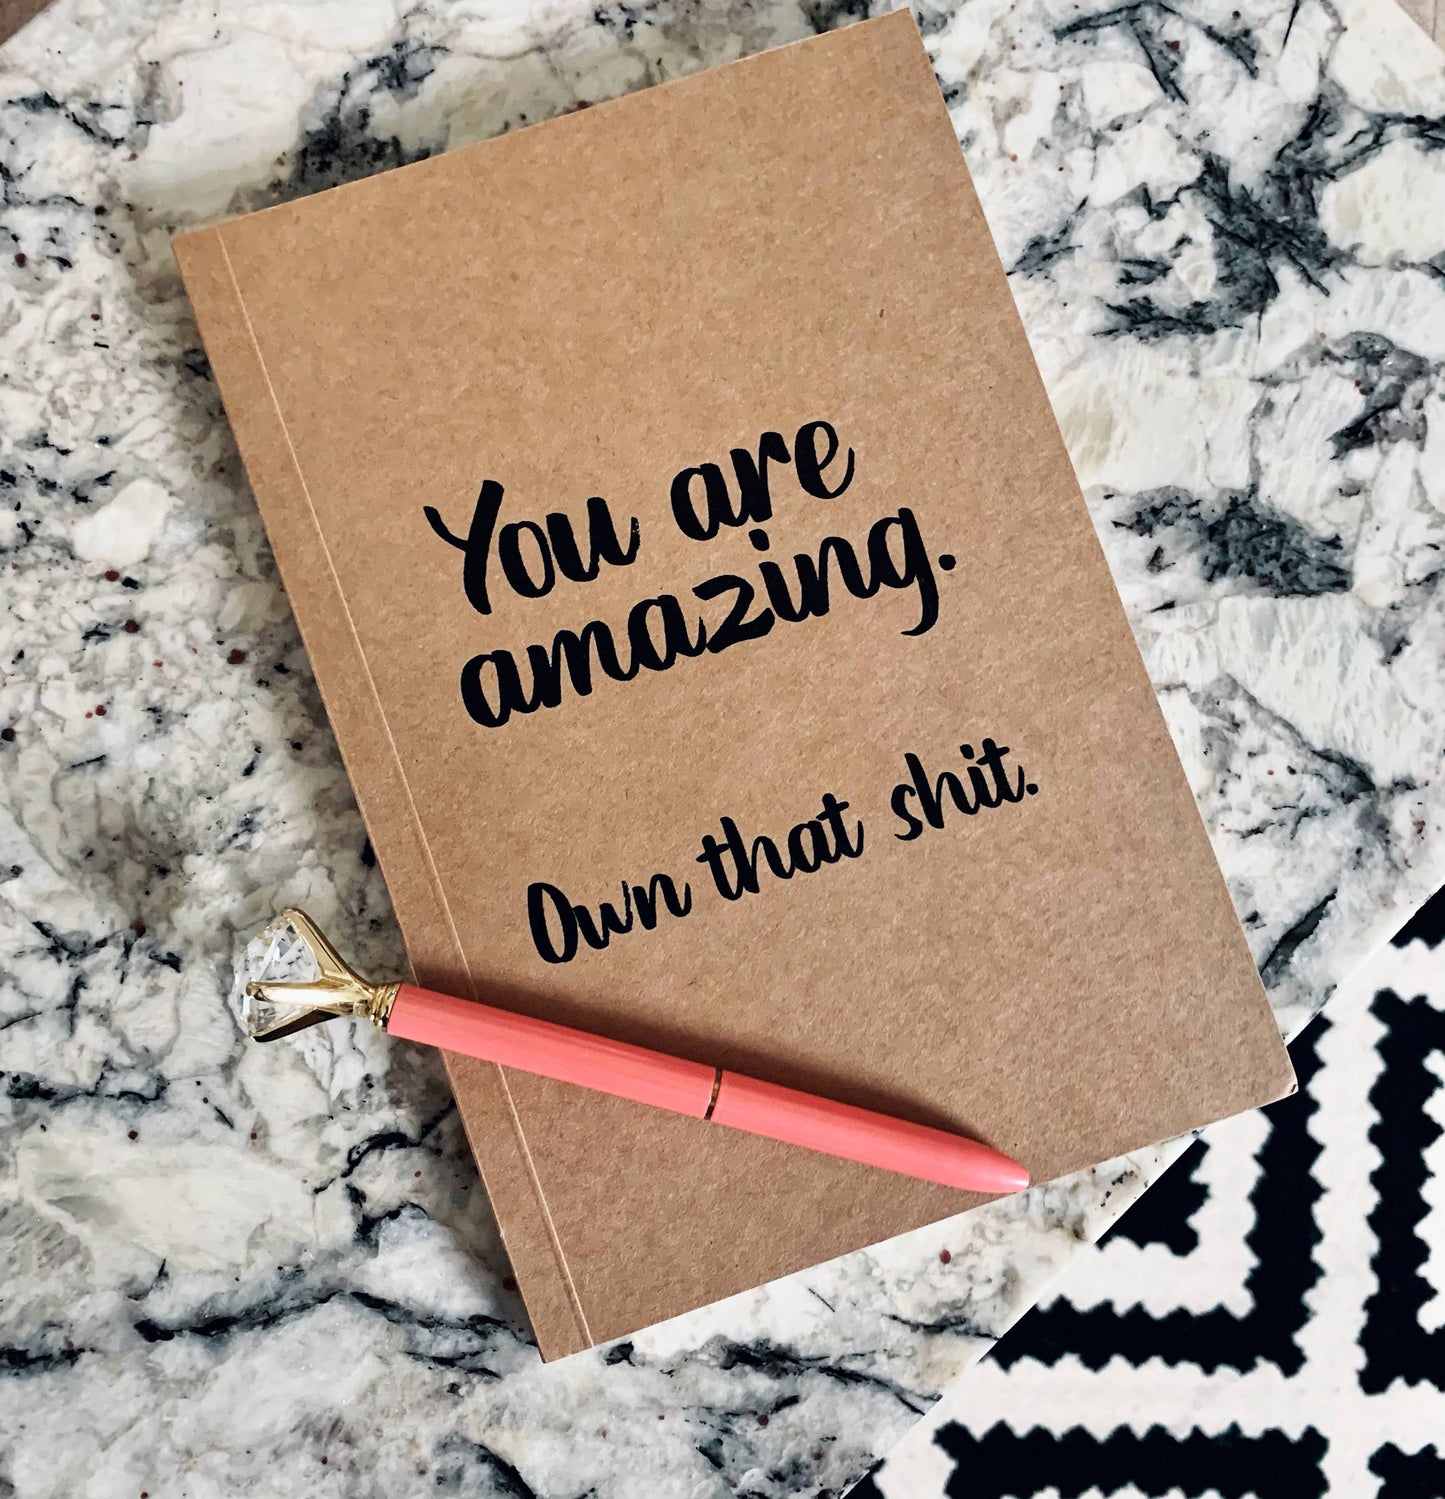 You are
amazing.
Own that shit.